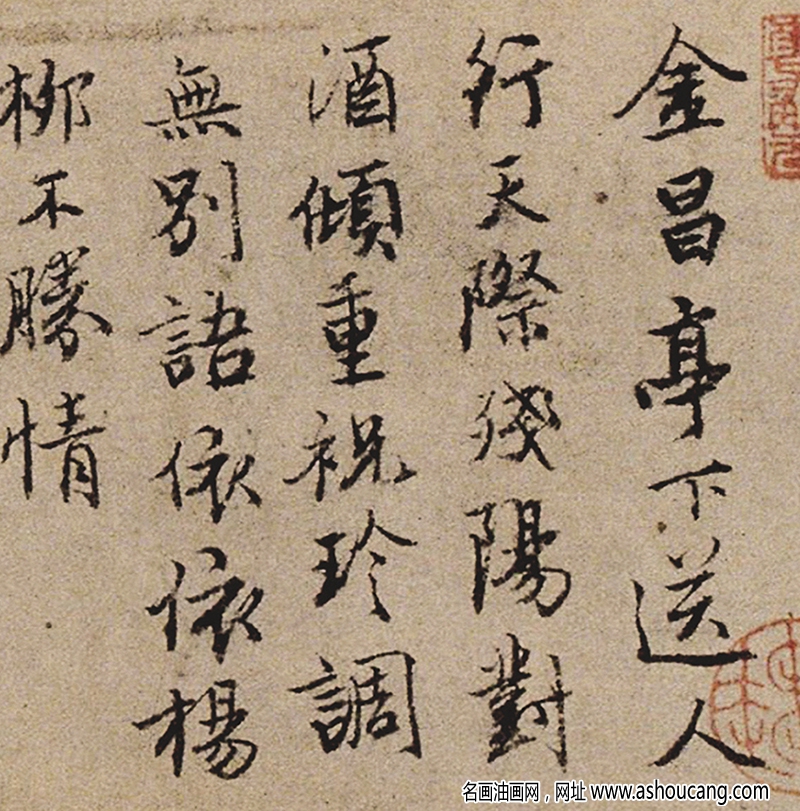 金昌亭下送人
行天際殘陽對
酒傾重祝珍調
無別語依依楊
柳不勝情
名画油画网，网址 www.ashoucang.com